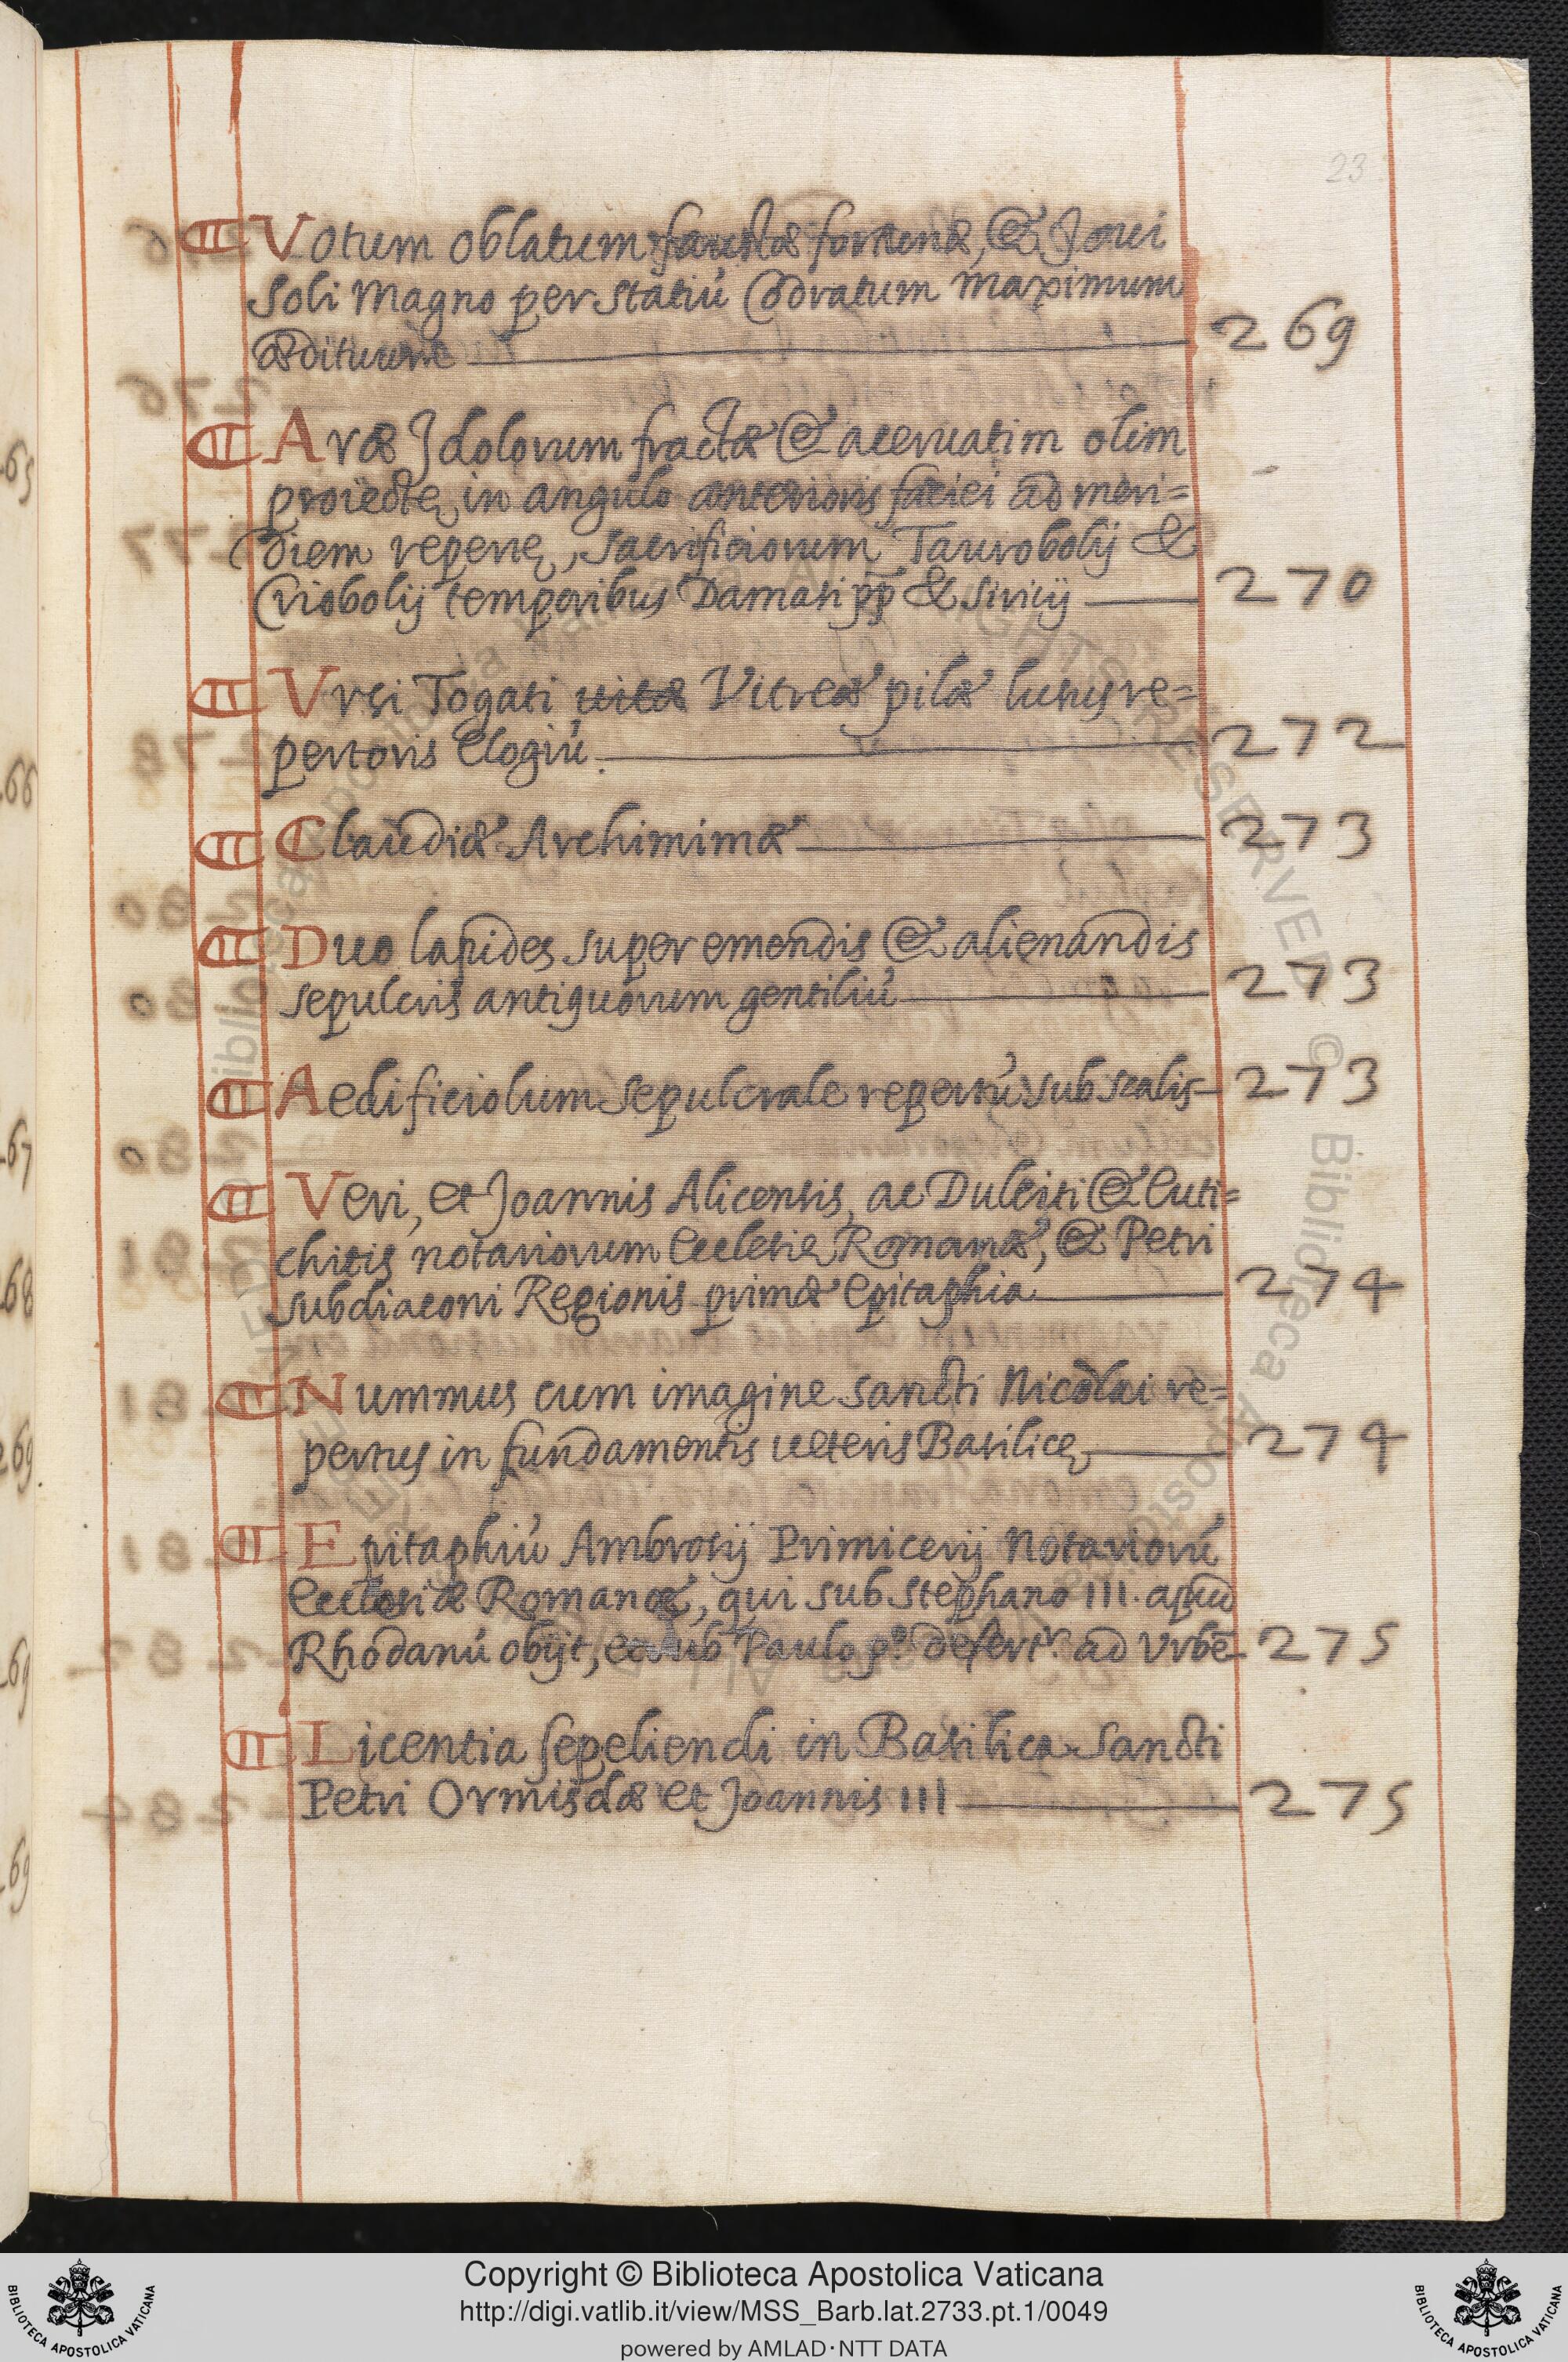 23
¶ Votum oblatum faustæ fortunæ, & Joui
Soli Magno per statiū Codratum Maximum
ædituum 269
¶ Aræ Jdolorum fractæ & aceruatim olim
proiectę in angulo anterioris faciei ad meri=
diem repertę, sacrificiorum Taurobolij &
Criobolij temporibus Damasi pp̄ & Siricij 270
¶ Vrsi Togati uitæ Vitreæ pilæ lusus re=
pertoris elogiū. 272
¶ Claudiæ Archimimæ 273
¶ Duo lapides super emendis & alienandis
sepulcris antiquorum gentiliū 273
¶ Aedificiolum sepulcrale repertū sub scalis 273
¶ Veri, et Joannis Alicensis, ac Dulciti & Euti=
chitis notariorum Ecclesię Romanæ, & Petri
subdiaconi Regionis primæ Epitaphia 274
¶ Nummus cum imagine sancti Nicolai re=
pertus in fundamentis ueteris Basilicę 274
¶ Epitaphiū Ambrosij Primicerij Notariorū
Ecclesiæ Romanæ, qui sub Stephano III. apud
Rhodanū obijt, et sub Paulo p.º defert.r ad Vrbē 275
¶ Licentia sepeliendi in Basilica Sancti
Petri Ormisdæ et Joannis III 275
Copyright © Biblioteca Apostolica Vaticana
http://digi.vatlib.it/view/MSS_Barb.lat.2733.pt.1/0049
powered by AMLAD·NTT DATA
BIBLIOTECA APOSTOLICA VATICANA
BIBLIOTECA APOSTOLICA VATICANA